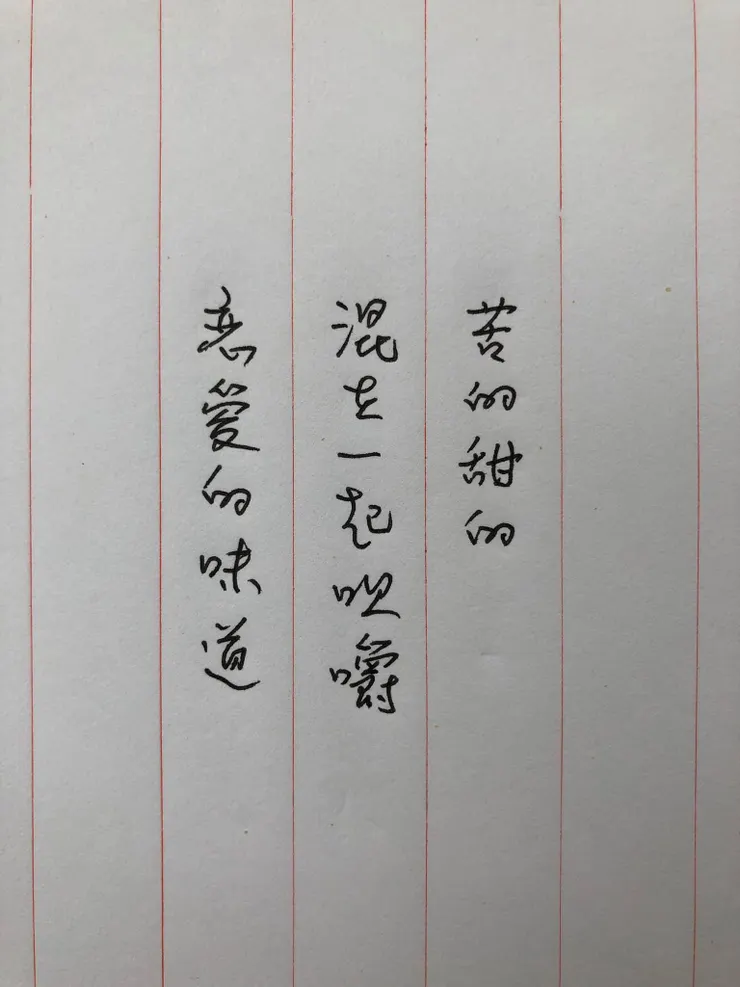 苦的甜的
混在一起咀嚼
恋爱的味道